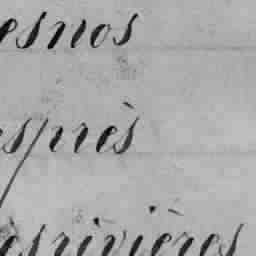 esnos
esprès
esrivières